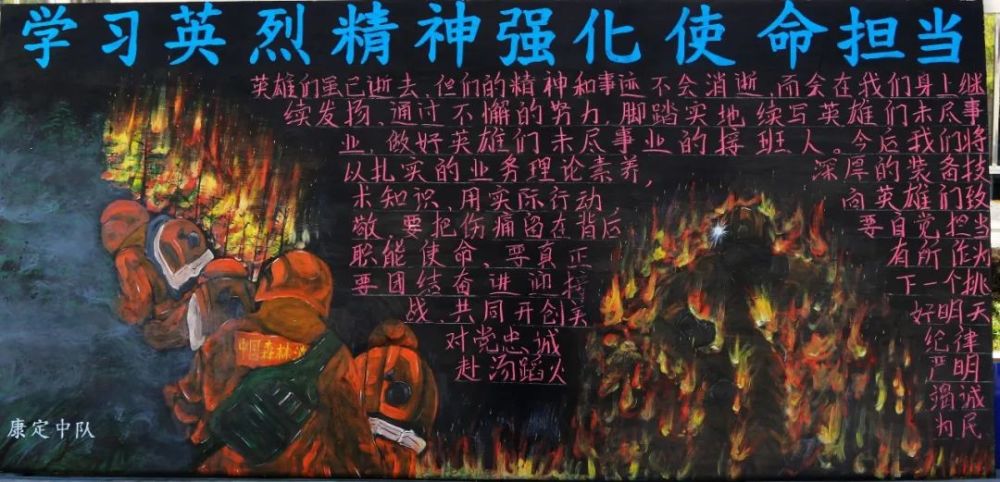 学习英烈精神强化使命担当
英雄们虽已逝去,但们的精神和事迹不会消逝,而会在我们身上继
续发扬,通过不懈的努力,脚踏实地续写英雄们未尽事
业,做好英雄们未尽事业的接班人。今后我们将
以扎实的业务理论素养, 深厚的装备技
术知识,用实际行动, 向英雄们致
敬,要把伤痛留在背后 要自觉担当
职能使命、要真正 有所作为
要团结奋进迎接 下一个挑
战共同开创美 好明天
对党忠诚 纪律
赴汤蹈火 严明
竭诚
为民
中国森林消
康定中队